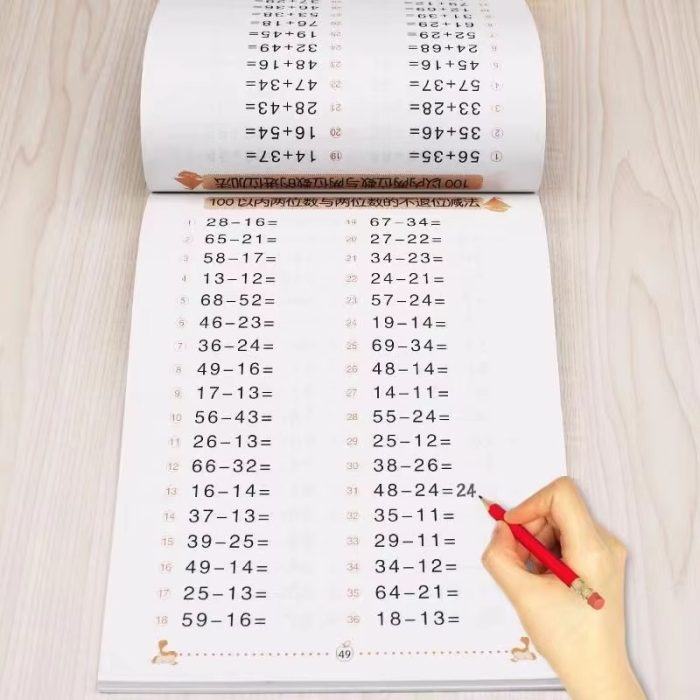 100以内两位数与两位数的进位加法
① 56+35= ⑲ 14+37=
② 35+46= ⑳ 16+54=
③ 33+28= 21 28+43=
④ 57+37= 22 47+34=
5 45+16= 23 48+16=
6 24+68= 24 32+49=
7 52+29= 25 19+45=
100以内两位数与两位数的不退位减法
1 28-16= 19 67-34=
2 65-21= 20 27-22=
3 58-17= 21 34-23=
4 13-12= 22 24-21=
5 68-52= 23 57-24=
6 46-23= 24 19-14=
7 36-24= 25 69-34=
8 49-16= 26 48-14=
9 17-13= 27 14-11=
10 56-43= 28 55-24=
11 26-13= 29 25-12=
12 66-32= 30 38-26=
13 16-14= 31 48-24=24
14 37-13= 32 35-11=
15 39-25= 33 29-11=
16 49-14= 34 34-12=
17 25-13= 35 64-21=
18 59-16= 36 18-13=
49